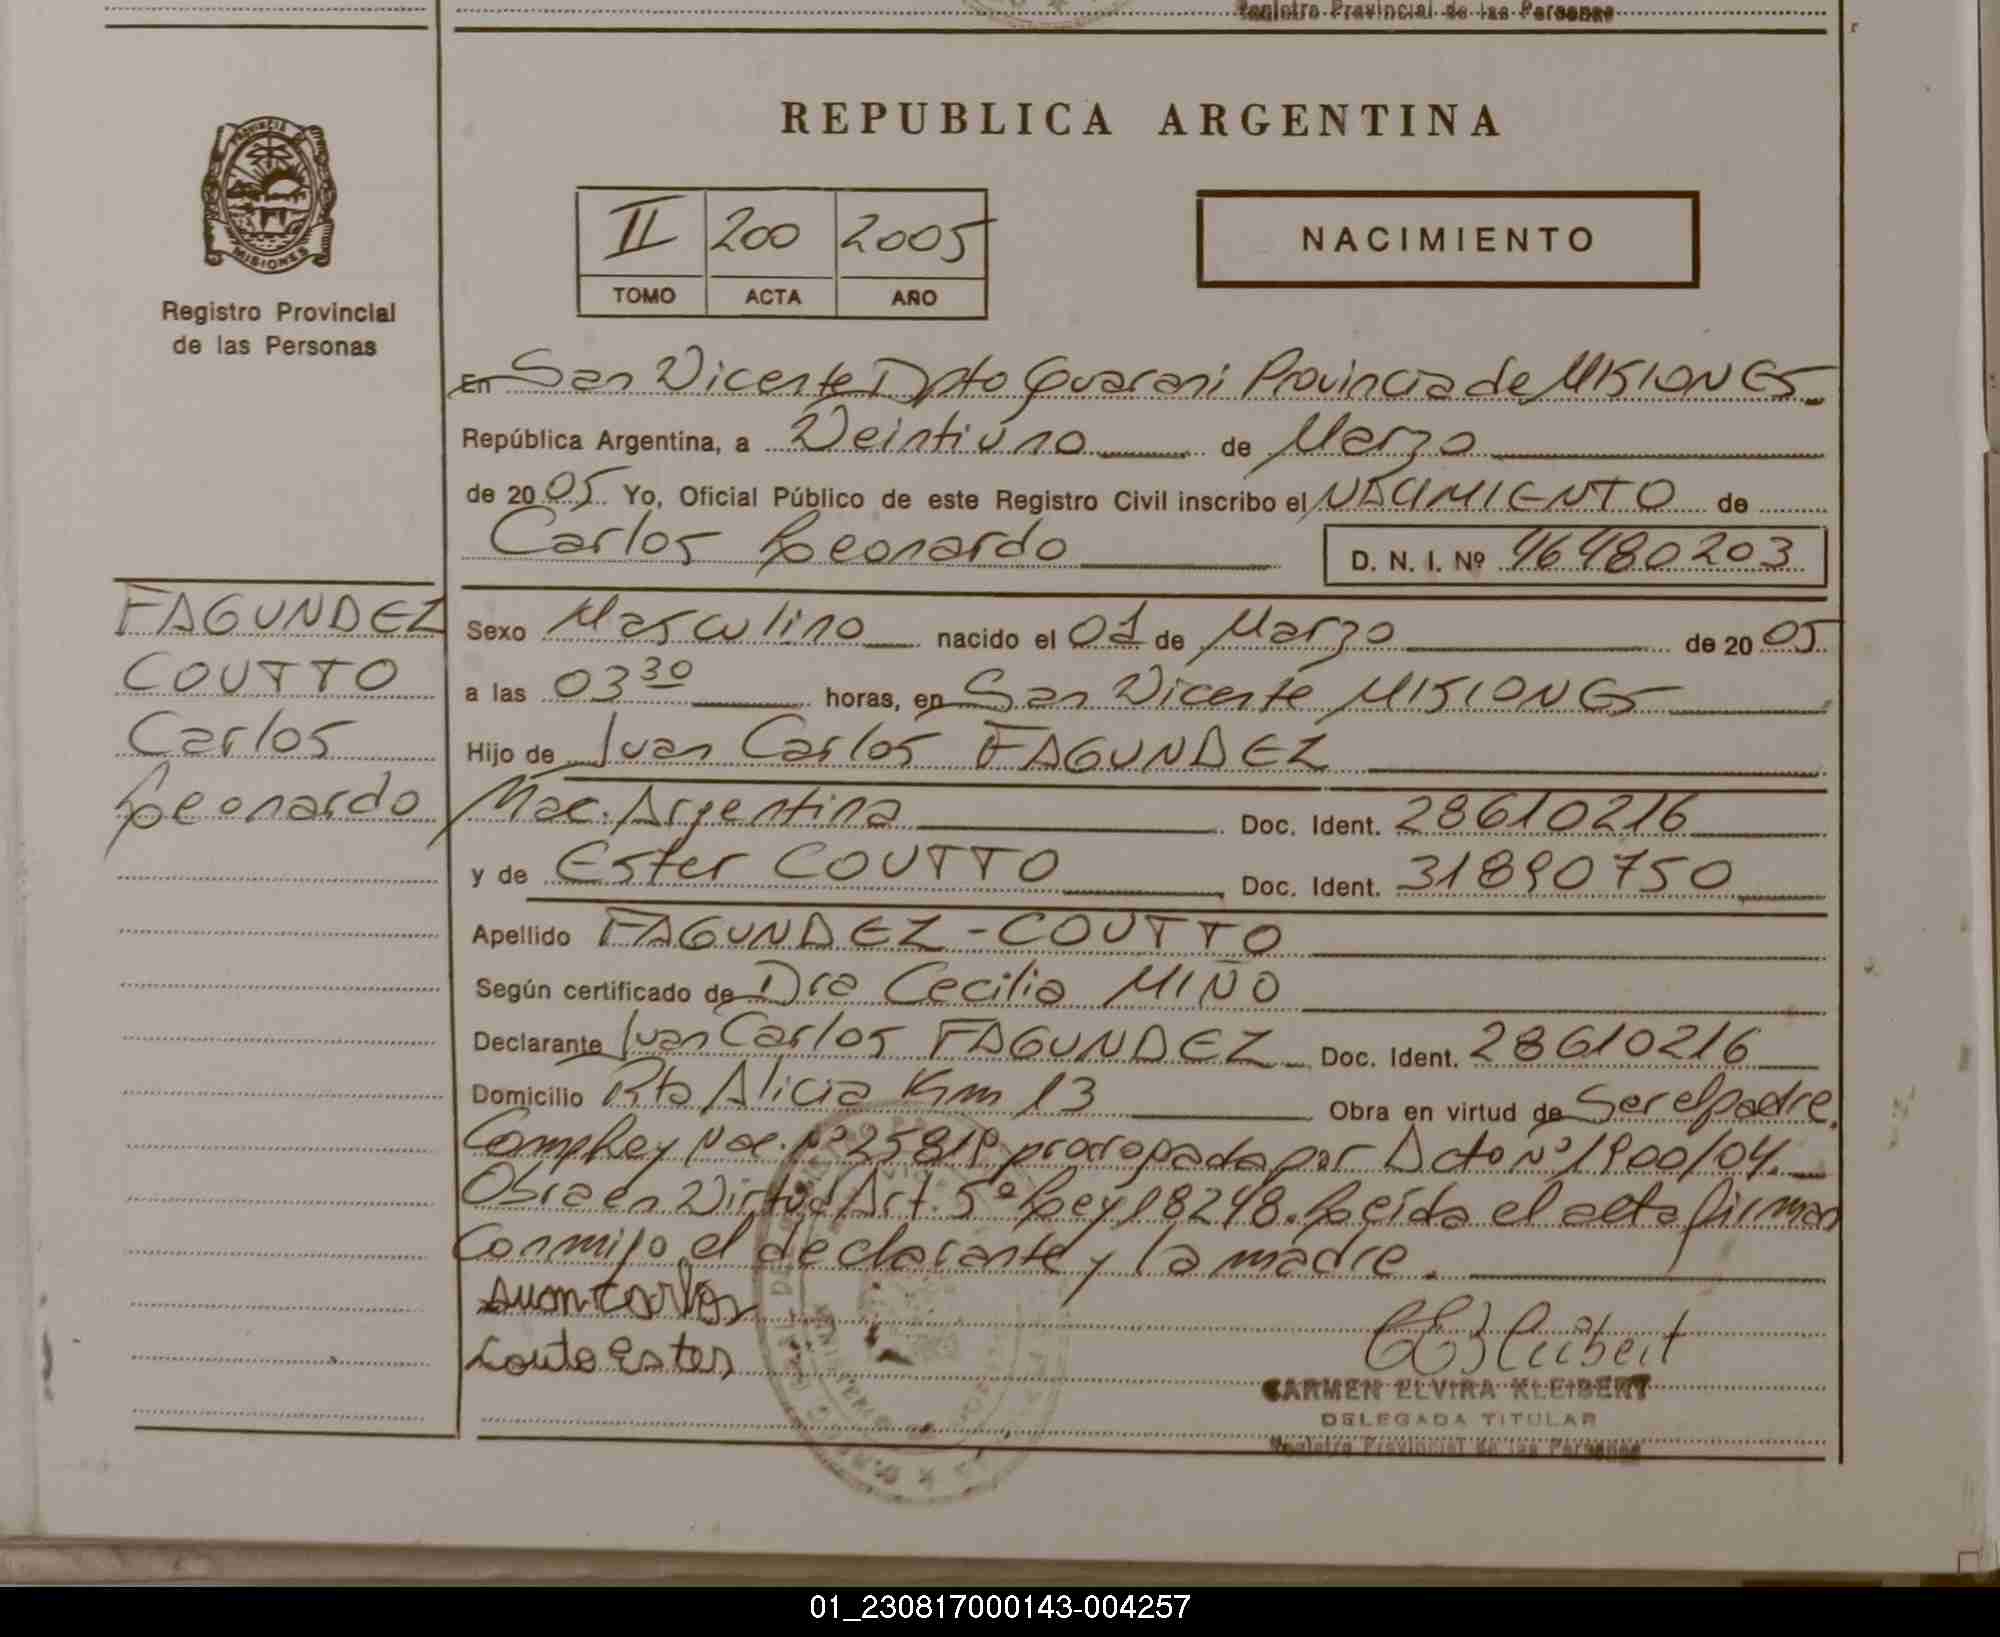 Registro Provincial de las Personas
REPUBLICA ARGENTINA
PROVINCIA
MISIONES
Registro Provincial
de las Personas
II 200 2005
TOMO ACTA AÑO
NACIMIENTO
En San Vicente Dpto Guarani Provincia de MISIONES
República Argentina, a Veintiuno de Marzo
de 2005 Yo, Oficial Público de este Registro Civil inscribo el NACIMIENTO de
Carlos Leonardo D. N. I. Nº 46480203
FAGUNDEZ
COUTTO
Carlos
Leonardo
Sexo Masculino nacido el 01 de Marzo de 2005
a las 03 30 horas, en San Vicente MISIONES
Hijo de Juan Carlos FAGUNDEZ
Nac. Argentina Doc. Ident. 28610216
y de Ester COUTTO Doc. Ident. 31890750
Apellido FAGUNDEZ - COUTTO
Según certificado de Dra Cecilia MIÑO
Declarante Juan Carlos FAGUNDEZ Doc. Ident. 28610216
Domicilio Pto Alicia Km 13 Obra en virtud de Ser el padre.
Conf Ley Nac. Nº 25819 prorrogada por Dcto Nº 1900/04.
Obra en Virtud Art. 5º Ley 18248. Leída el acta firman
Conmigo el declarante y la madre.
Juan Carlos
Couto Ester
CEKleibert
CARMEN ELVIRA KLEIBERT
DELEGADA TITULAR
Registro Provincial de las Personas
01_230817000143-004257